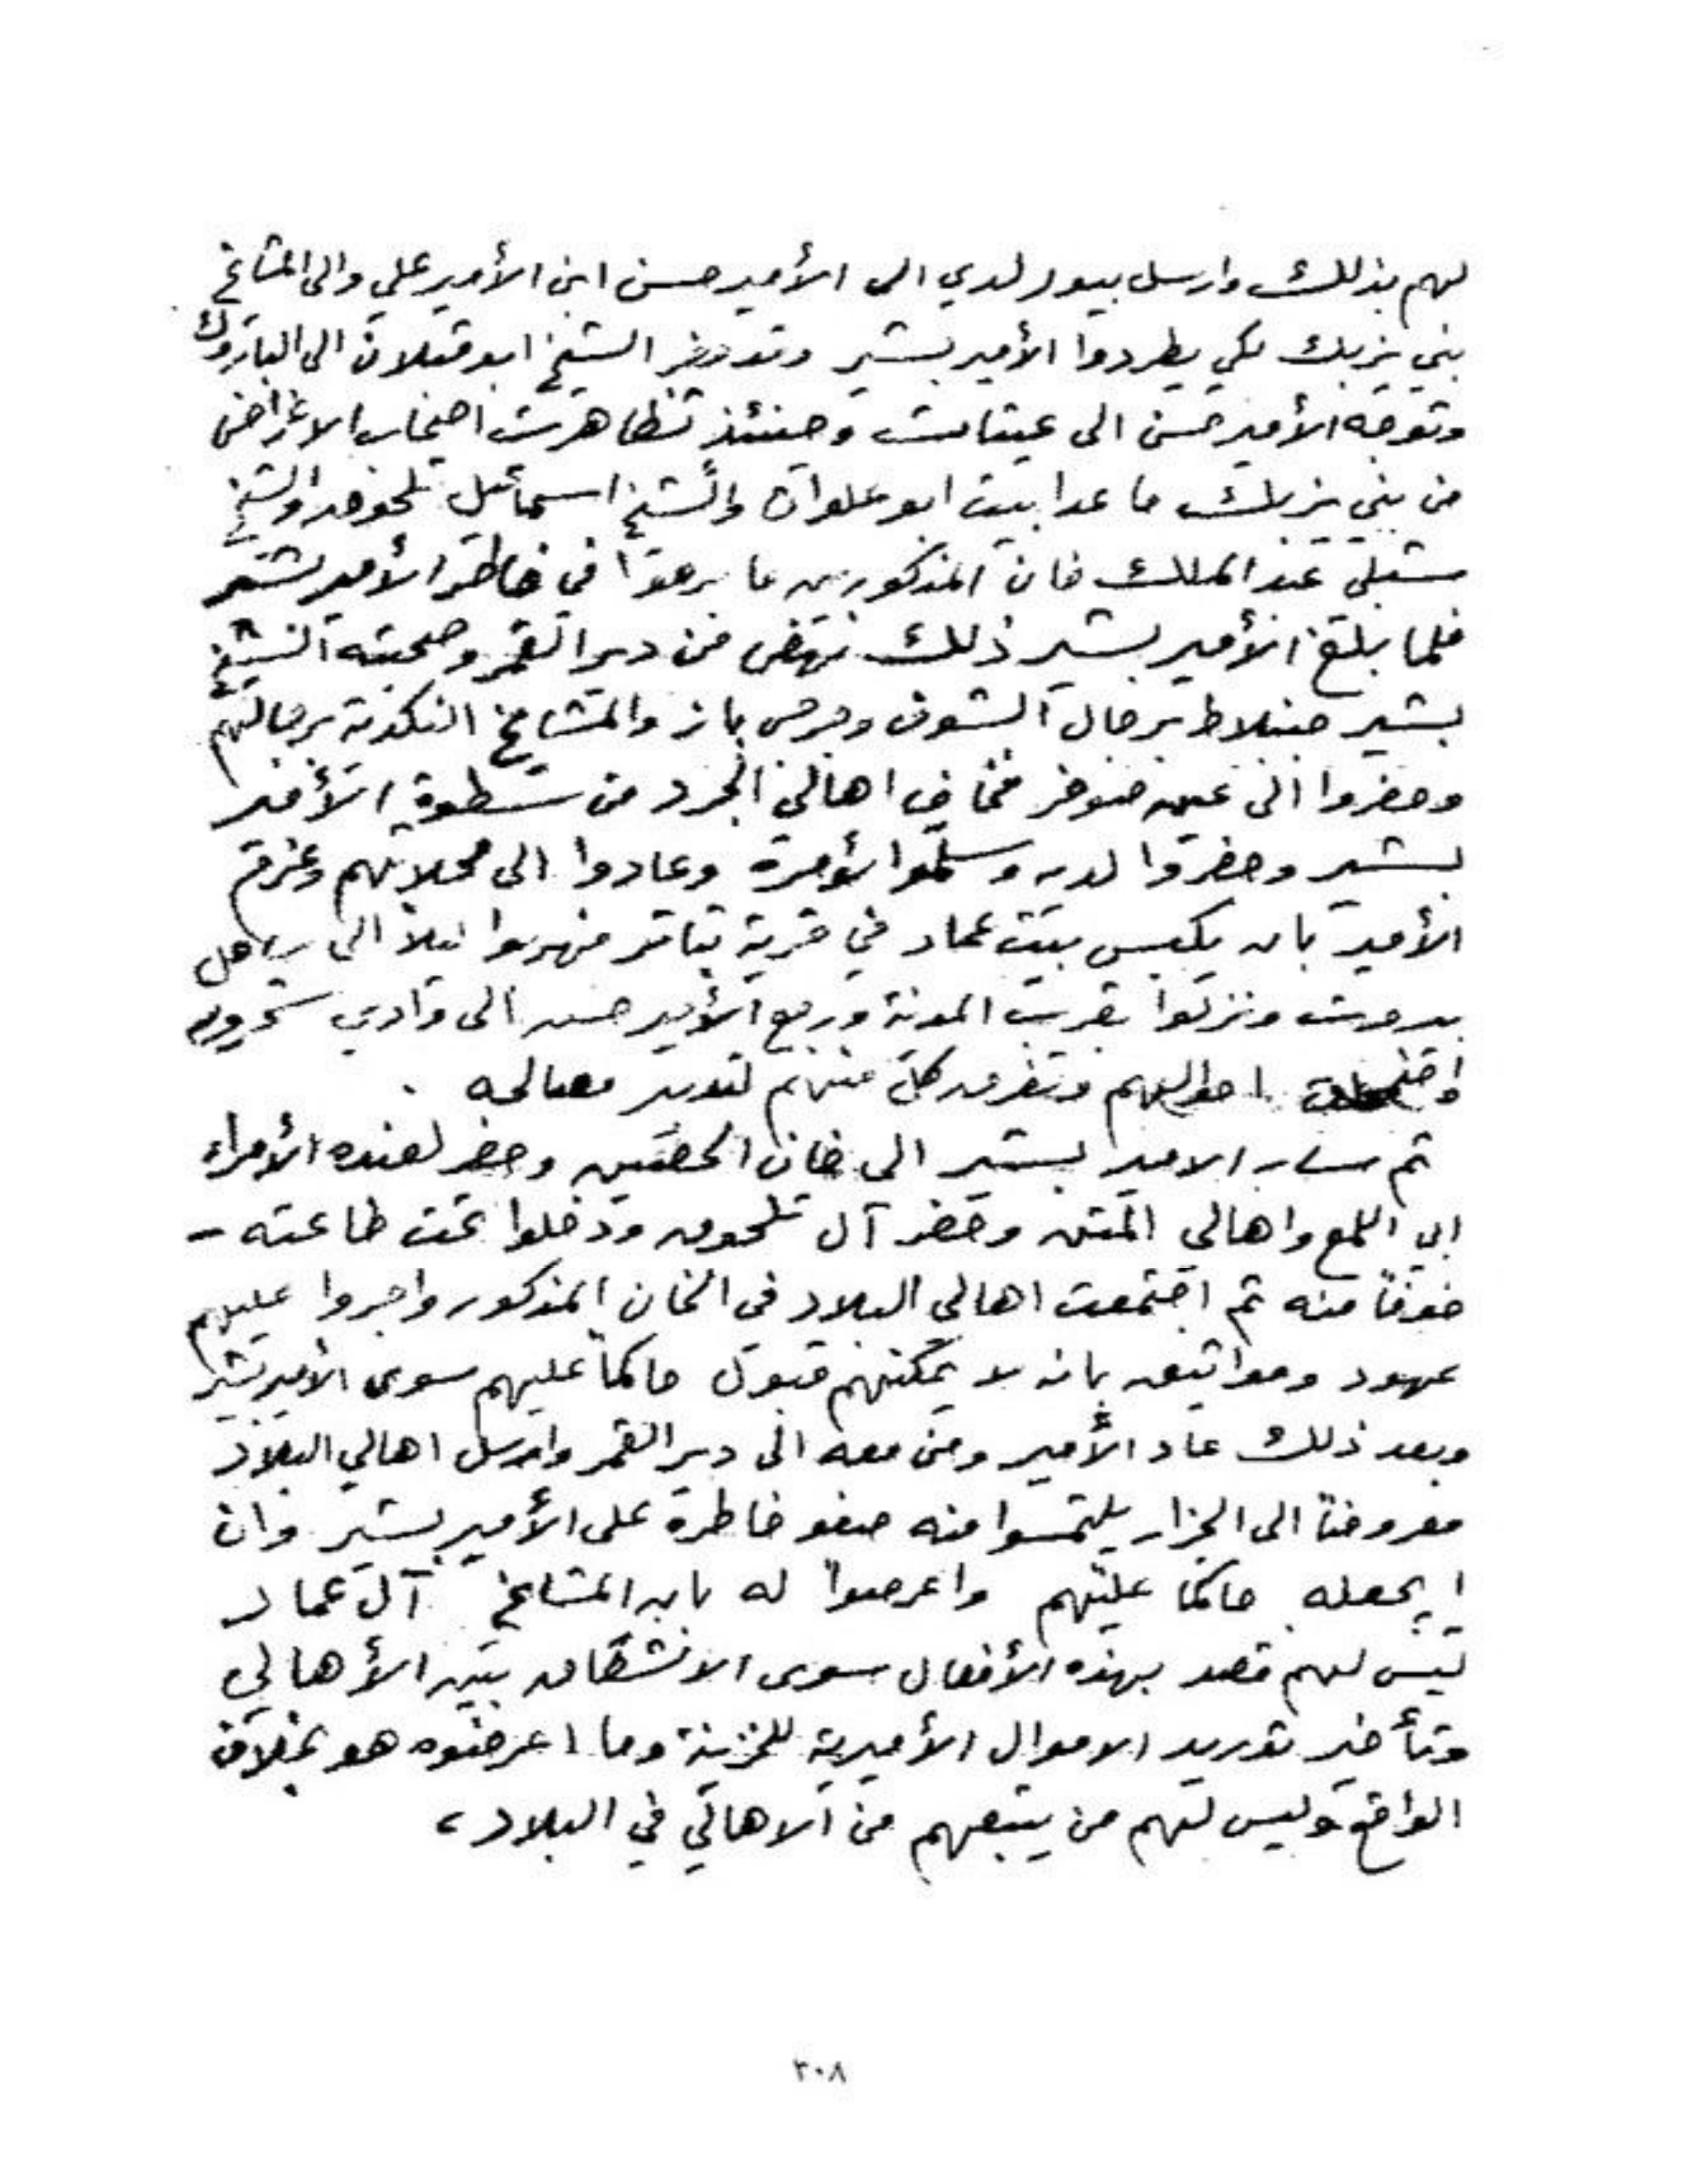 لهم بذلك وارسل بيورلدي الى الأمير حسن ابن الأمير علي والى المشايخ
بني يزبك لكي يطردوا الأمير بشير وتوجه الشيخ ابو قبلان الى الباروك
وتوجه الأمير حسن الى عيتات وحينئذ تظاهرت اصحاب الاغراض
من بني يزبك ما عدا بيت ابو علوان والشيخ اسماعيل تلحوق والشيخ
شبلي عبد الملك فان المذكورين ما برحوا في خاطر الأمير بشير
فلما بلغ الأمير بشير ذلك نهض من دير القمر وصحبته الشيخ
بشير جنبلاط برجال الشوف وجرجس باز والمشايخ النكدية برجالهم
وحضروا الى عين صوفر فخاف اهالي الجرد من سطوة الأمير
بشير وحضروا لديه وسلّموا لأمره وعادوا الى محلاتهم وعزم
الأمير بان يكبس بيت عماد في قرية بتاتر فهربوا ليلاً الى ساحل
بيروت ونزلوا بقرب المدينة ورجع الأمير حسن الى وادي شحرور
احوالهم وتفرق كل منهم لتدبير مصالحه .
ثم سار الامير بشير الى خان الحصين وحضر لعنده الأمراء
ابي اللمع واهالي المتن وحضر آل تلحوق ودخلوا تحت طاعته -
خوفاً منه ثم اجتمعت اهالي البلاد في الخان المذكور واجروا عليهم
عهود ومواثيق بانه لا يمكنهم قبول حاكماً عليهم سوى الأمير بشير
وبعد ذلك عاد الأمير ومن معه الى دير القمر وارسل اهالي البلاد
معروضاً الى الجزار يلتمسوا منه صفو خاطره على الأمير بشير وان
يجعله حاكما عليهم واعرضوا له بان المشايخ آل عماد
ليس لهم قصد بهذه الأفعال سوى الانشقاق بين الأهالي
وتأخير توريد الاموال الأميرية للخزينة وما اعرضوه هو بخلاف
الواقع وليس لهم من يتبعهم من الاهالي في البلاد ،
٣٠٨